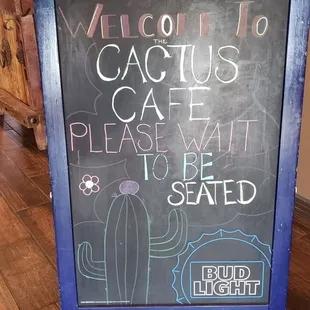 WELCOME TO
THE
CACTUS
CAFE
PLEASE WAIT
TO BE
SEATED
BUD
LIGHT